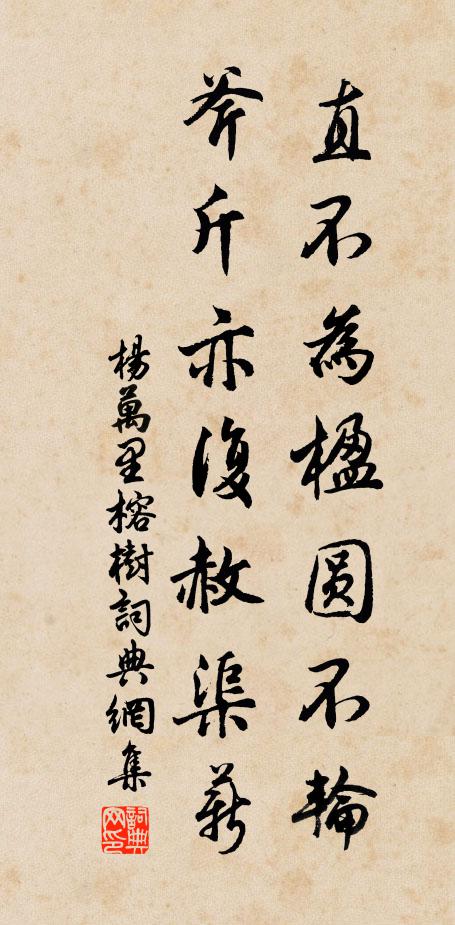 直不為楹圆不輪
斧斤亦復赦渠薪
楊萬里榕樹詞典網集
詞典网印